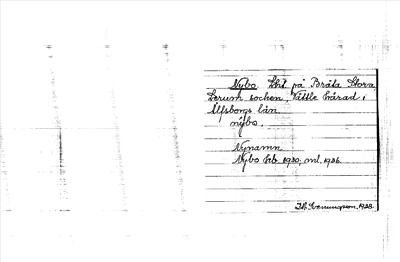 Nybo lht på Bråta Stora
Lerum socken, Vättle härad,
Älfsborgs län
nýbo.
Nynamn
Nybo lht 1930, ml. 1936.
1938